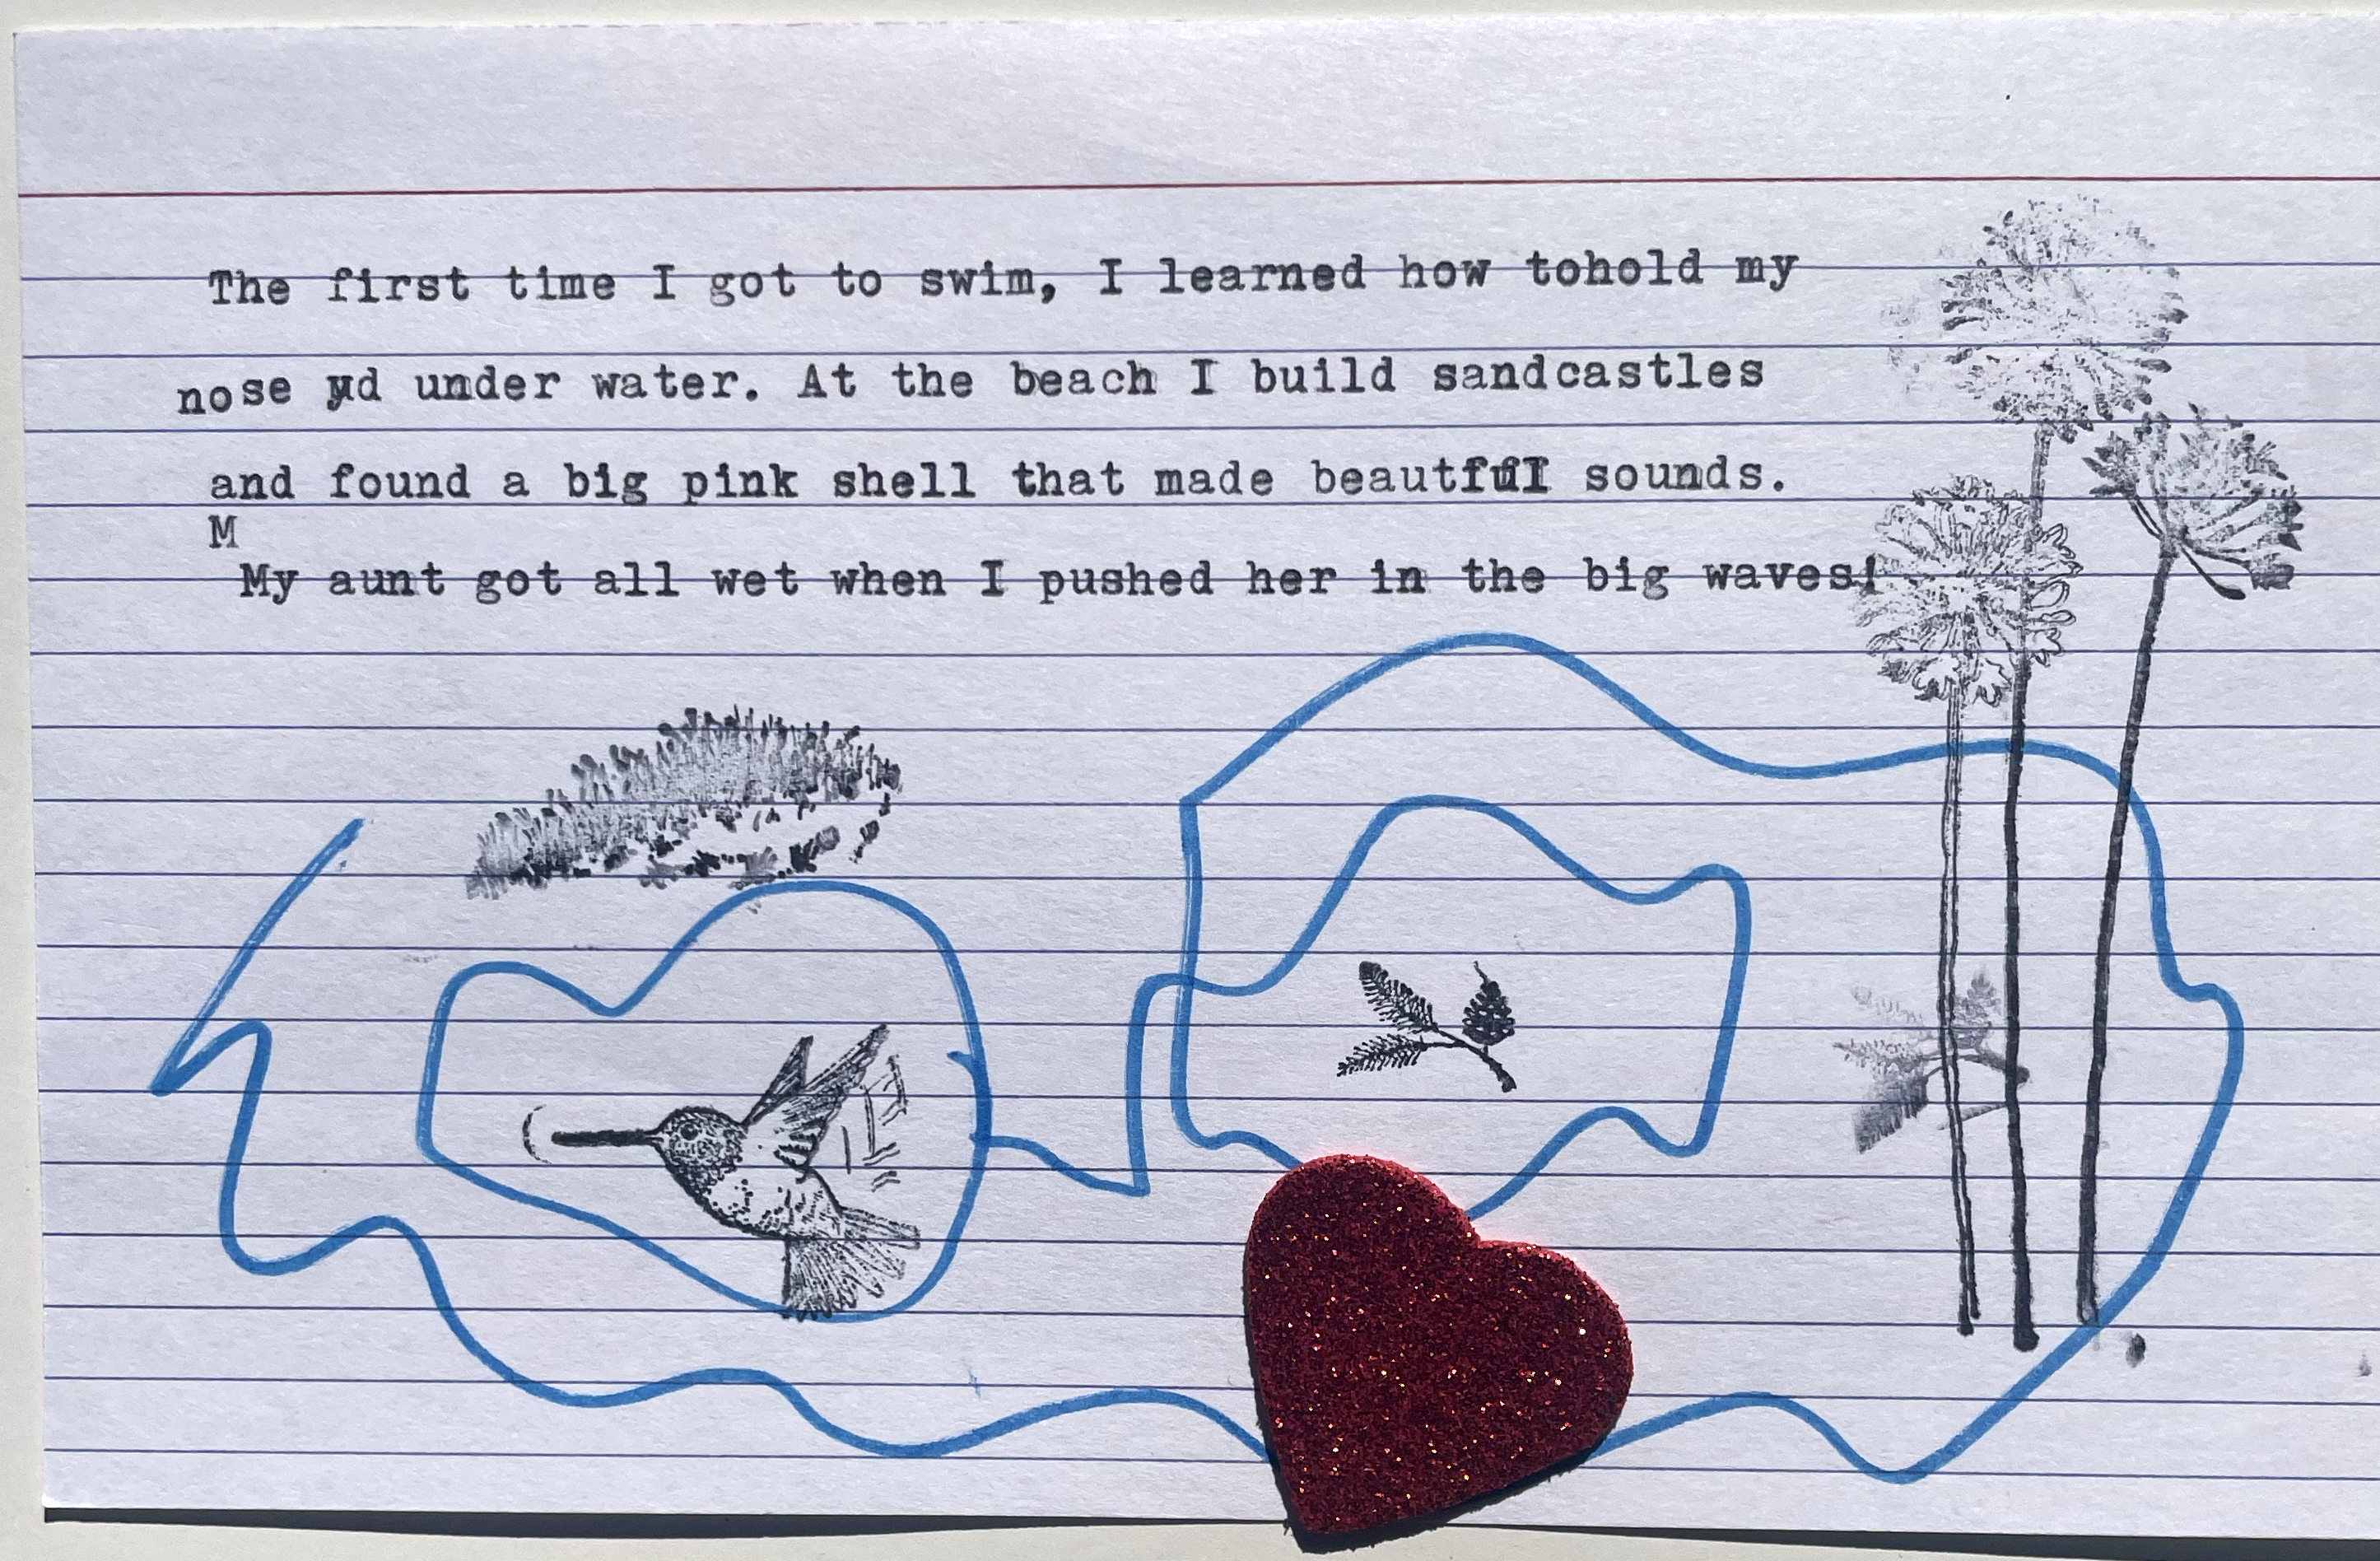 The first time I got to swim, I learned how tohold my
nose under water. At the beach I build sandcastles
and found a big pink shell that made sounds.
M
My aunt got all wet when I pushed her in the big waves!